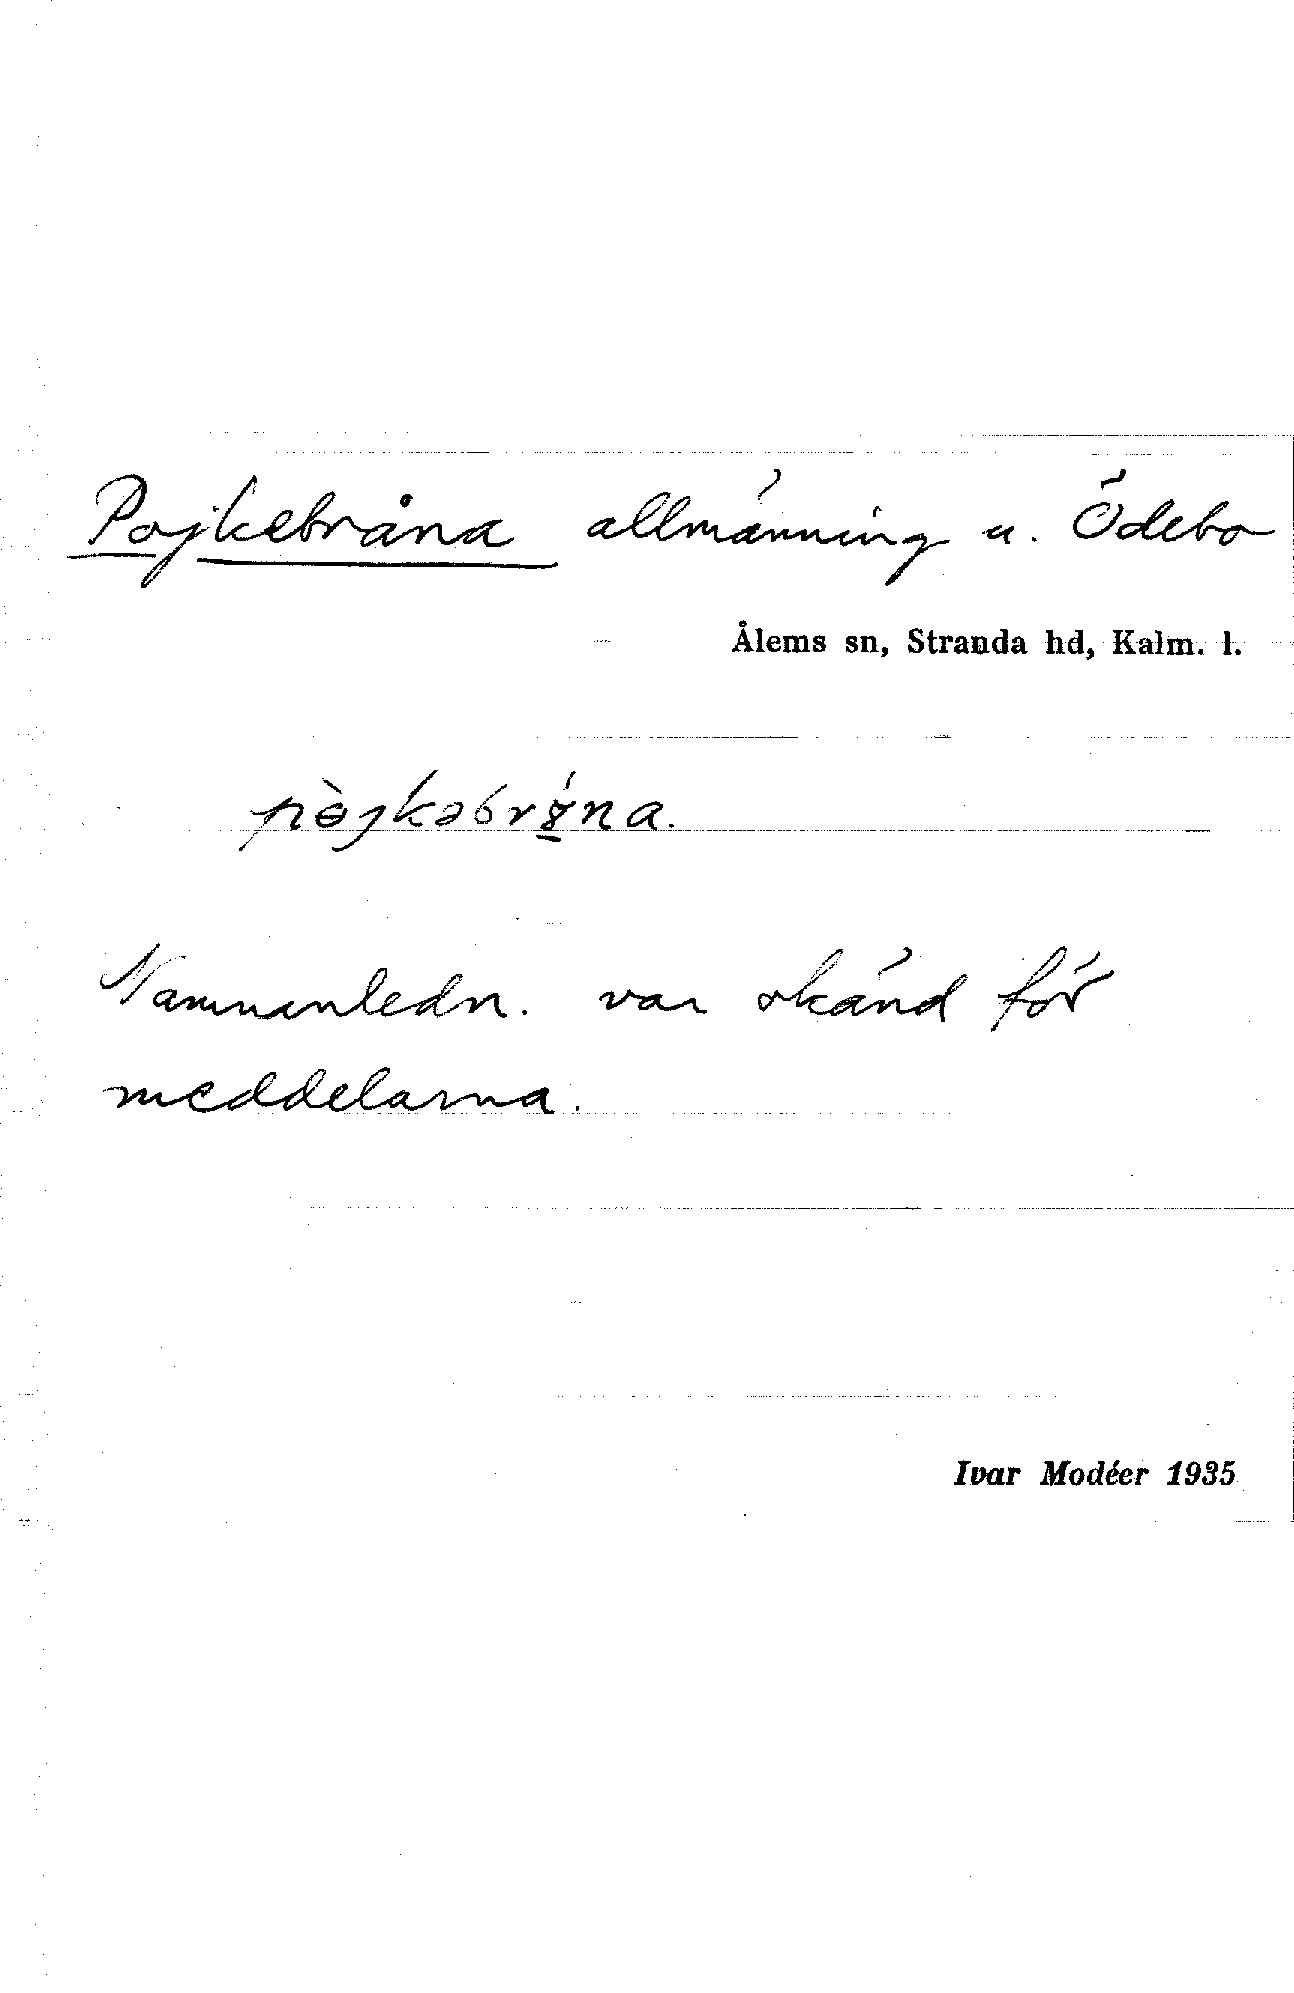 Pojkebråna allmänning u. Ödebo
Ålems sn, Stranda hd, Kalm. l.
Namnanledn. var okänd för
meddelarna.
Ivar Modéer 1935